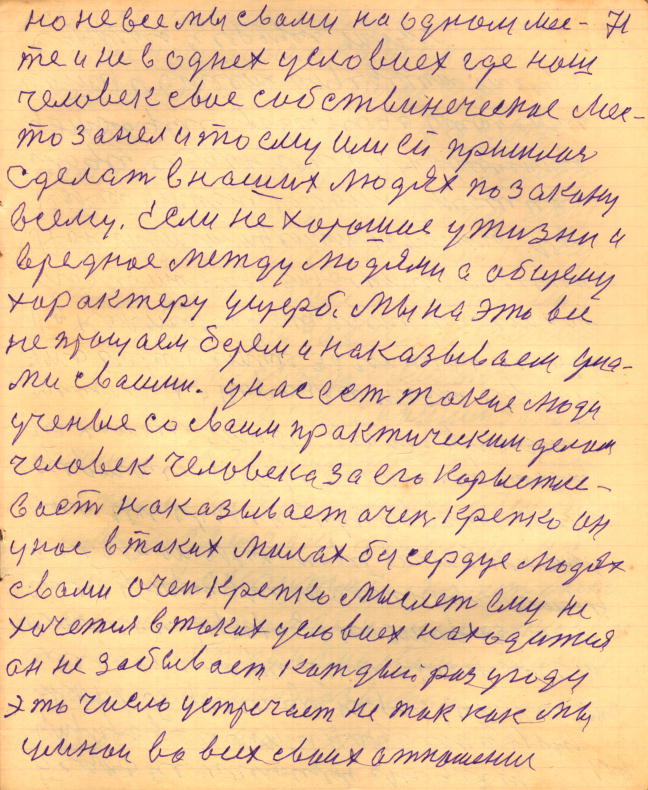 но не все мы свами на одном мес- 71
те и не в однех условиех где наш
человек свое собствинеческое мес-
то занел и то ему или ей пришлос
сделат в наших людях по закону
всему. Если не хорошие у жизни и
вредное между людями а общему
характеру ущерб. Мы на это все
не прощаем берем и наказываем ума-
ми сваими. у нас ест такие люди
ученые со сваим практическим делам
человек человека за его корыстли-
васт наказывает очен крепко он
у нас в таких милах бы сердце людях
свами очен крепко мыслет ему не
хочется в таких условиех находится
он не забывает каждый раз у году
это число устречает не так как мы
умнаи во всех своих отношении